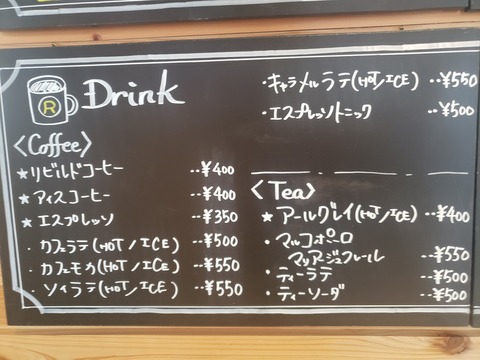 R
Drink
〈Coffee〉
★リビルドコーヒー ‥¥400
★アイスコーヒー ‥¥400
★エスプレッソ ‥¥350
・カフェラテ(HOT/ICE) ‥¥500
・カフェモカ(HOT/ICE) ‥¥550
・ソイラテ(HOT/ICE) ‥¥550
・キャラメルラテ(HOT/ICE) ‥¥550
・エスプレッソトニック ‥¥500
〈Tea〉
★アールグレイ(HOT/ICE) ‥¥400
・マルコポーロ
マリアージュフレール ‥¥550
・ティーラテ ‥¥500
・ティーソーダ ‥¥500